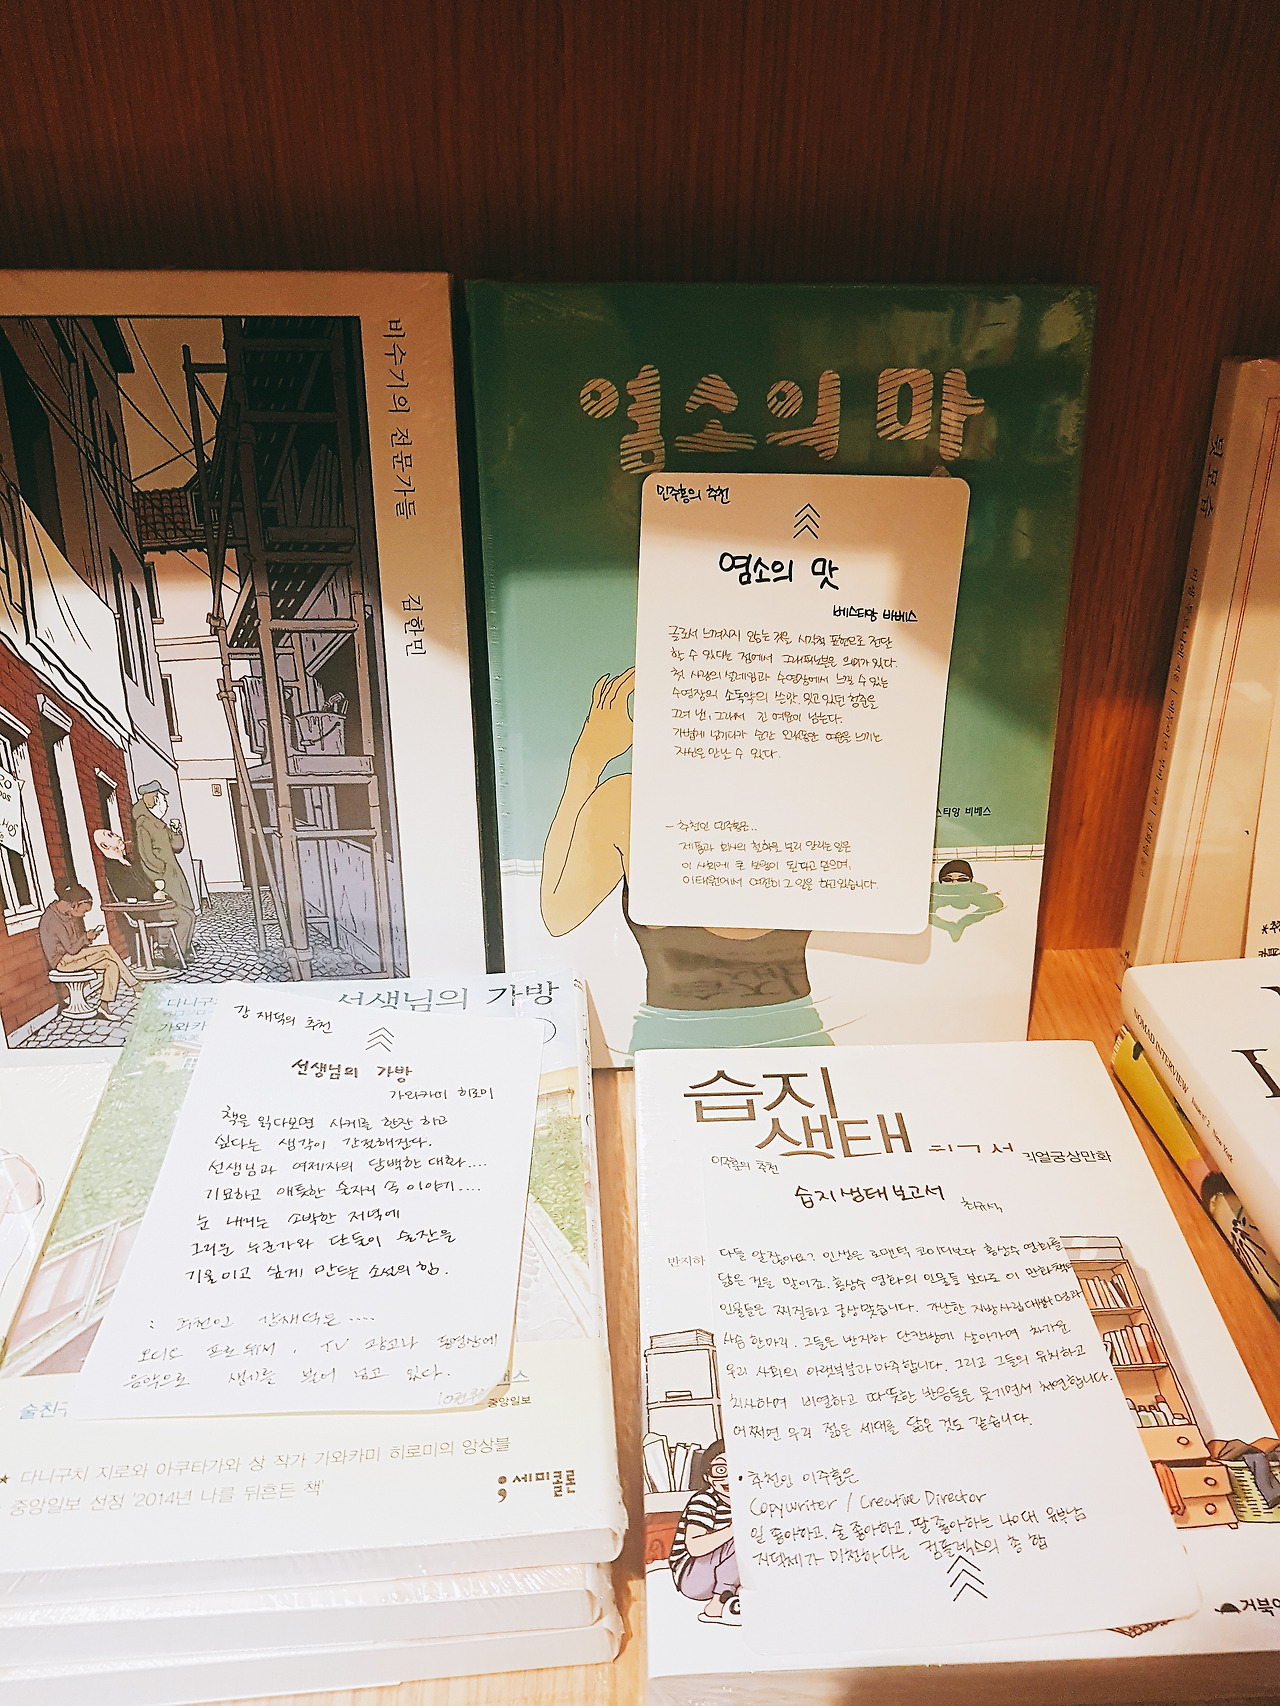 비수기의 전문가들 김한민
염소의 맛
민주홍의 추천
염소의 맛
베스티앙 비베스
글로서 느껴지지 않는 것을 시각적 표현으로 전달
할 수 있다는 점에서 그래픽노블은 의미가 있다.
첫 사랑의 설레임과 수영장에서 느낄 수 있는
수영장의 소독약의 쓴맛. 잊고 있던 청춘을
그려 낸, 그래서 긴 여운이 남는다.
가볍게 넘기다가 순간 오랫동안 여운을 느끼는
자신을 만날 수 있다.
- 추천인 민주홍은..
제품과 회사의 철학을 널리 알리는 일은
이 사회에 큰 보탬이 된다고 믿으며,
이태원에서 여전히 그 일을 하고 있습니다.
스티앙 비베스
뒷모습
다니구
가와카
선생님의 가방
강재덕의 추천
선생님의 가방
가와카미 히로미
책을 읽다보면 사케를 한잔 하고
싶다는 생각이 간절해진다.
선생님과 여제자의 담백한 대화....
기묘하고 애틋한 술자리 속 이야기....
눈 내리는 소박한 저녁에
그리운 누군가와 단둘이 술잔을
기울이고 싶게 만드는 소설의 힘.
: 추천인 강재덕은....
오디오 프로듀서, TV 광고나 동영상에
음악으로 생기를 불어 넣고 있다.
술친구
중앙일보
★ 다니구치 지로와 아쿠타가와 상 작가 가와카미 히로미의 앙상블
중앙일보 선정 '2014년 나를 뒤흔든 책'
세미콜론
습지
생태
리얼궁상만화
이주훈의 추천
습지생태보고서
최규석
반지하
다들 알잖아요? 인생은 로맨틱 코미디보다 홍상수 영화를
닮은 것을 말이죠. 홍상수 영화의 인물들 보다도 이 만화책의
인물들은 찌질하고 궁상맞습니다. 가난한 지방사립대생 다섯과
사슴 한마리. 그들은 반지하 단칸방에 살아가며 차가운
우리 사회의 아랫부분과 마주합니다. 그리고 그들의 유치하고
치사하며 비열하고 따뜻한 반응들은 웃기면서 처연합니다.
어쩌면 우리 젊은 세대를 닮은 것도 같습니다.
• 추천인 이주훈은
Copywriter / Creative Director
일 좋아하고, 술 좋아하고, 딸 좋아하는 40대 유부남
지덕체가 미천하다는 컴플렉스의 총합
거북이
NOMAD INTERVIEW